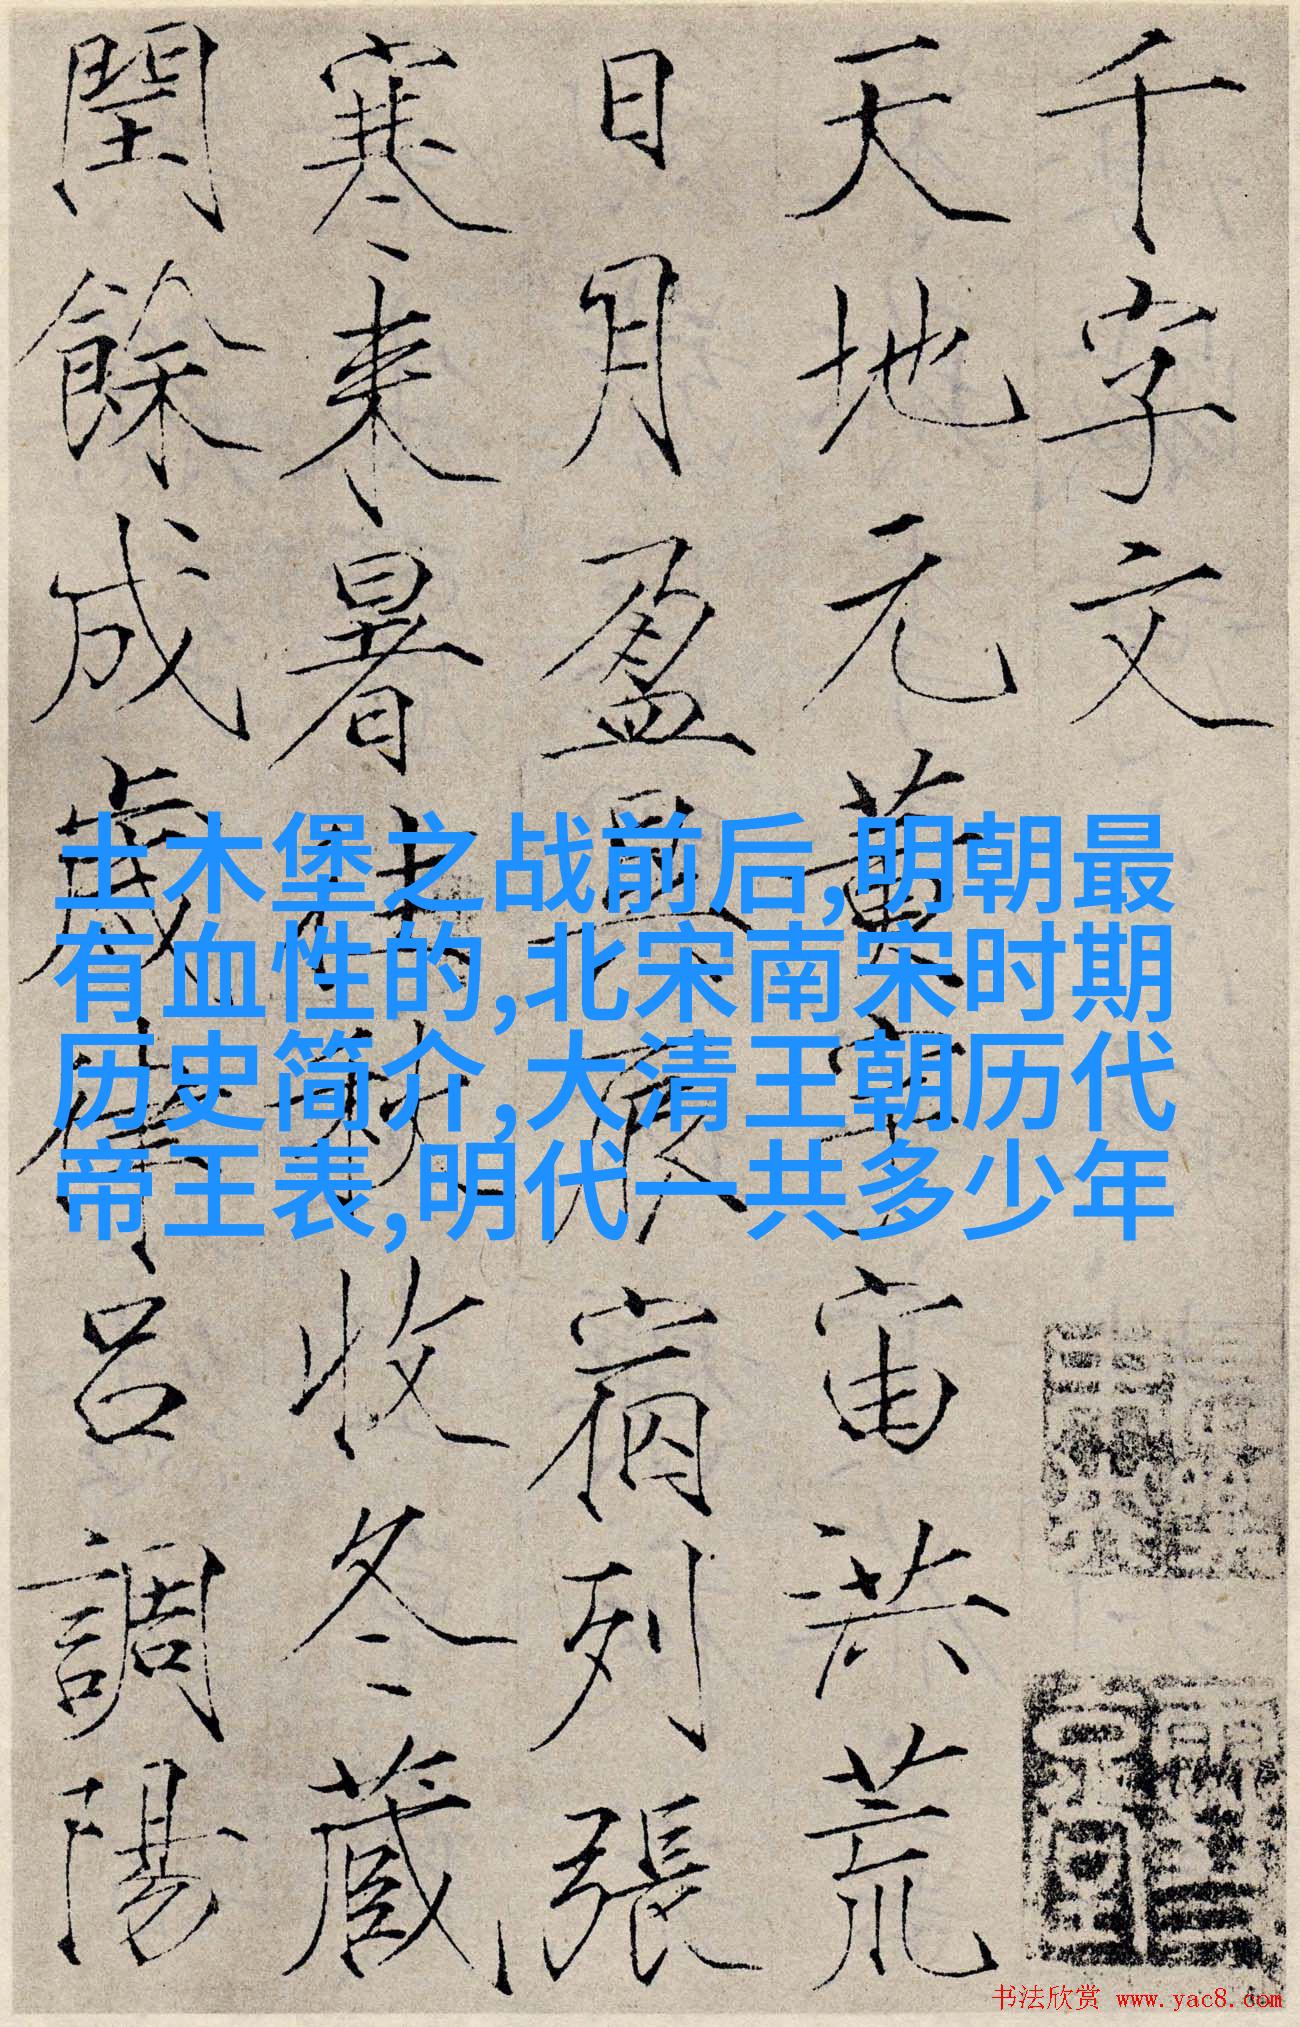 千字文
天地元黄宇宙洪荒
日月盈昃辰宿列張
寒来暑往秋收冬藏
閏餘成歲律呂調陽
土木堡之战前后,明朝最
有血性的,北宋南宋时期
历史简介,大清王朝历代
帝王表,明代一共多少年
书法欣赏 www.yac8.com